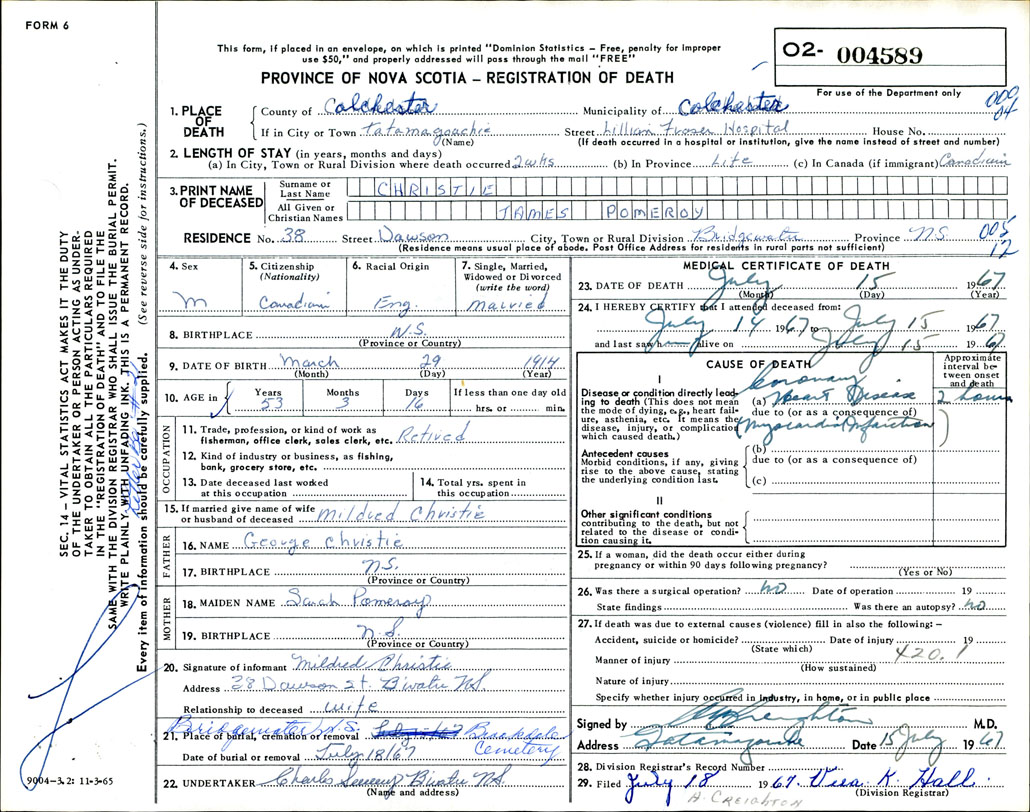 FORM 6
This form, if placed in an envelope, on which is printed "Dominion Statistics – Free, penalty for improper
use $50," and properly addressed will pass through the mail "FREE"
PROVINCE OF NOVA SCOTIA – REGISTRATION OF DEATH
O2- 004589
For use of the Department only
009
04
1. PLACE OF DEATH
County of Colchester Municipality of Colchester
If in City or Town Tatamagouche Street Lillian Fraser Hospital House No.
(Name) (If death occurred in a hospital or institution, give the name instead of street and number)
2. LENGTH OF STAY (in years, months and days)
(a) In City, Town or Rural Division where death occurred 2 wks (b) In Province Life (c) In Canada (if immigrant) Canadian
3. PRINT NAME OF DECEASED
Surname or Last Name CHRISTIE
All Given or Christian Names JAMES POMEROY
RESIDENCE No. 38 Street Dawson City, Town or Rural Division Bridgewater Province NS
(Residence means usual place of abode. Post Office Address for residents in rural parts not sufficient)
005
12
4. Sex
M
5. Citizenship
(Nationality)
Canadian
6. Racial Origin
Eng.
7. Single, Married,
Widowed or Divorced
(write the word)
married
8. BIRTHPLACE N.S.
(Province or Country)
9. DATE OF BIRTH March 29 1914
(Month) (Day) (Year)
10. AGE in
Years 53
Months 3
Days 16
If less than one day old
hrs. or min.
OCCUPATION
11. Trade, profession, or kind of work as
fisherman, office clerk, sales clerk, etc. Retired
12. Kind of industry or business, as fishing,
bank, grocery store, etc.
13. Date deceased last worked
at this occupation
14. Total yrs. spent in
this occupation
15. If married give name of wife
or husband of deceased Mildred Christie
FATHER
16. NAME George Christie
17. BIRTHPLACE N.S.
(Province or Country)
MOTHER
18. MAIDEN NAME Sarah Pomeroy
19. BIRTHPLACE N.S.
(Province or Country)
20. Signature of informant Mildred Christie
Address 38 Dawson St. Bwater NS
Relationship to deceased wife
Bridgewater N.S.
21. Place of burial, cremation or removal Brookside
Cemetery
Date of burial or removal July 18/67
22. UNDERTAKER Charles Bwater NS
(Name and address)
9004-3.2: 11-3-65
MEDICAL CERTIFICATE OF DEATH
23. DATE OF DEATH July 15 1967
(Month) (Day) (Year)
24. I HEREBY CERTIFY that I attended deceased from:
July 14 1967 to July 15 1967
and last saw h alive on July 15 1967
CAUSE OF DEATH
Approximate
interval be-
tween onset
and death
I
Disease or condition directly lead-
ing to death (This does not mean
the mode of dying, e.g., heart fail-
ure, asthenia, etc. It means the
disease, injury, or complication
which caused death.)
(a) Coronary
Heart Disease
2 hours
due to (or as a consequence of)
(Myocardial Infarction)
Antecedent causes
Morbid conditions, if any, giving
rise to the above cause, stating
the underlying condition last.
(b)
due to (or as a consequence of)
(c)
II
Other significant conditions
contributing to the death, but not
related to the disease or condi-
tion causing it.
25. If a woman, did the death occur either during
pregnancy or within 90 days following pregnancy?
(Yes or No)
26. Was there a surgical operation? NO Date of operation 19
State findings Was there an autopsy? NO
27. If death was due to external causes (violence) fill in also the following: –
Accident, suicide or homicide? Date of injury 19
(State which)
420.1
Manner of injury
(How sustained)
Nature of injury
Specify whether injury occurred in industry, in home, or in public place
Signed by Creighton M.D.
Address Tatamagouche Date 15 July 1967
28. Division Registrar's Record Number
29. Filed July 18 1967. K. Hall
(Division Registrar)
A. CREIGHTON
SEC. 14 – VITAL STATISTICS ACT MAKES IT THE DUTY
OF THE UNDERTAKER OR PERSON ACTING AS UNDER-
TAKER TO OBTAIN ALL THE PARTICULARS REQUIRED
IN THE "REGISTRATION OF DEATH" AND TO FILE THE
SAME WITH THE DIVISION REGISTRAR WHO SHALL ISSUE THE BURIAL PERMIT.
WRITE PLAINLY, WITH UNFADING INK. THIS IS A PERMANENT RECORD.
Every item of information should be carefully supplied. (See reverse side for instructions.)